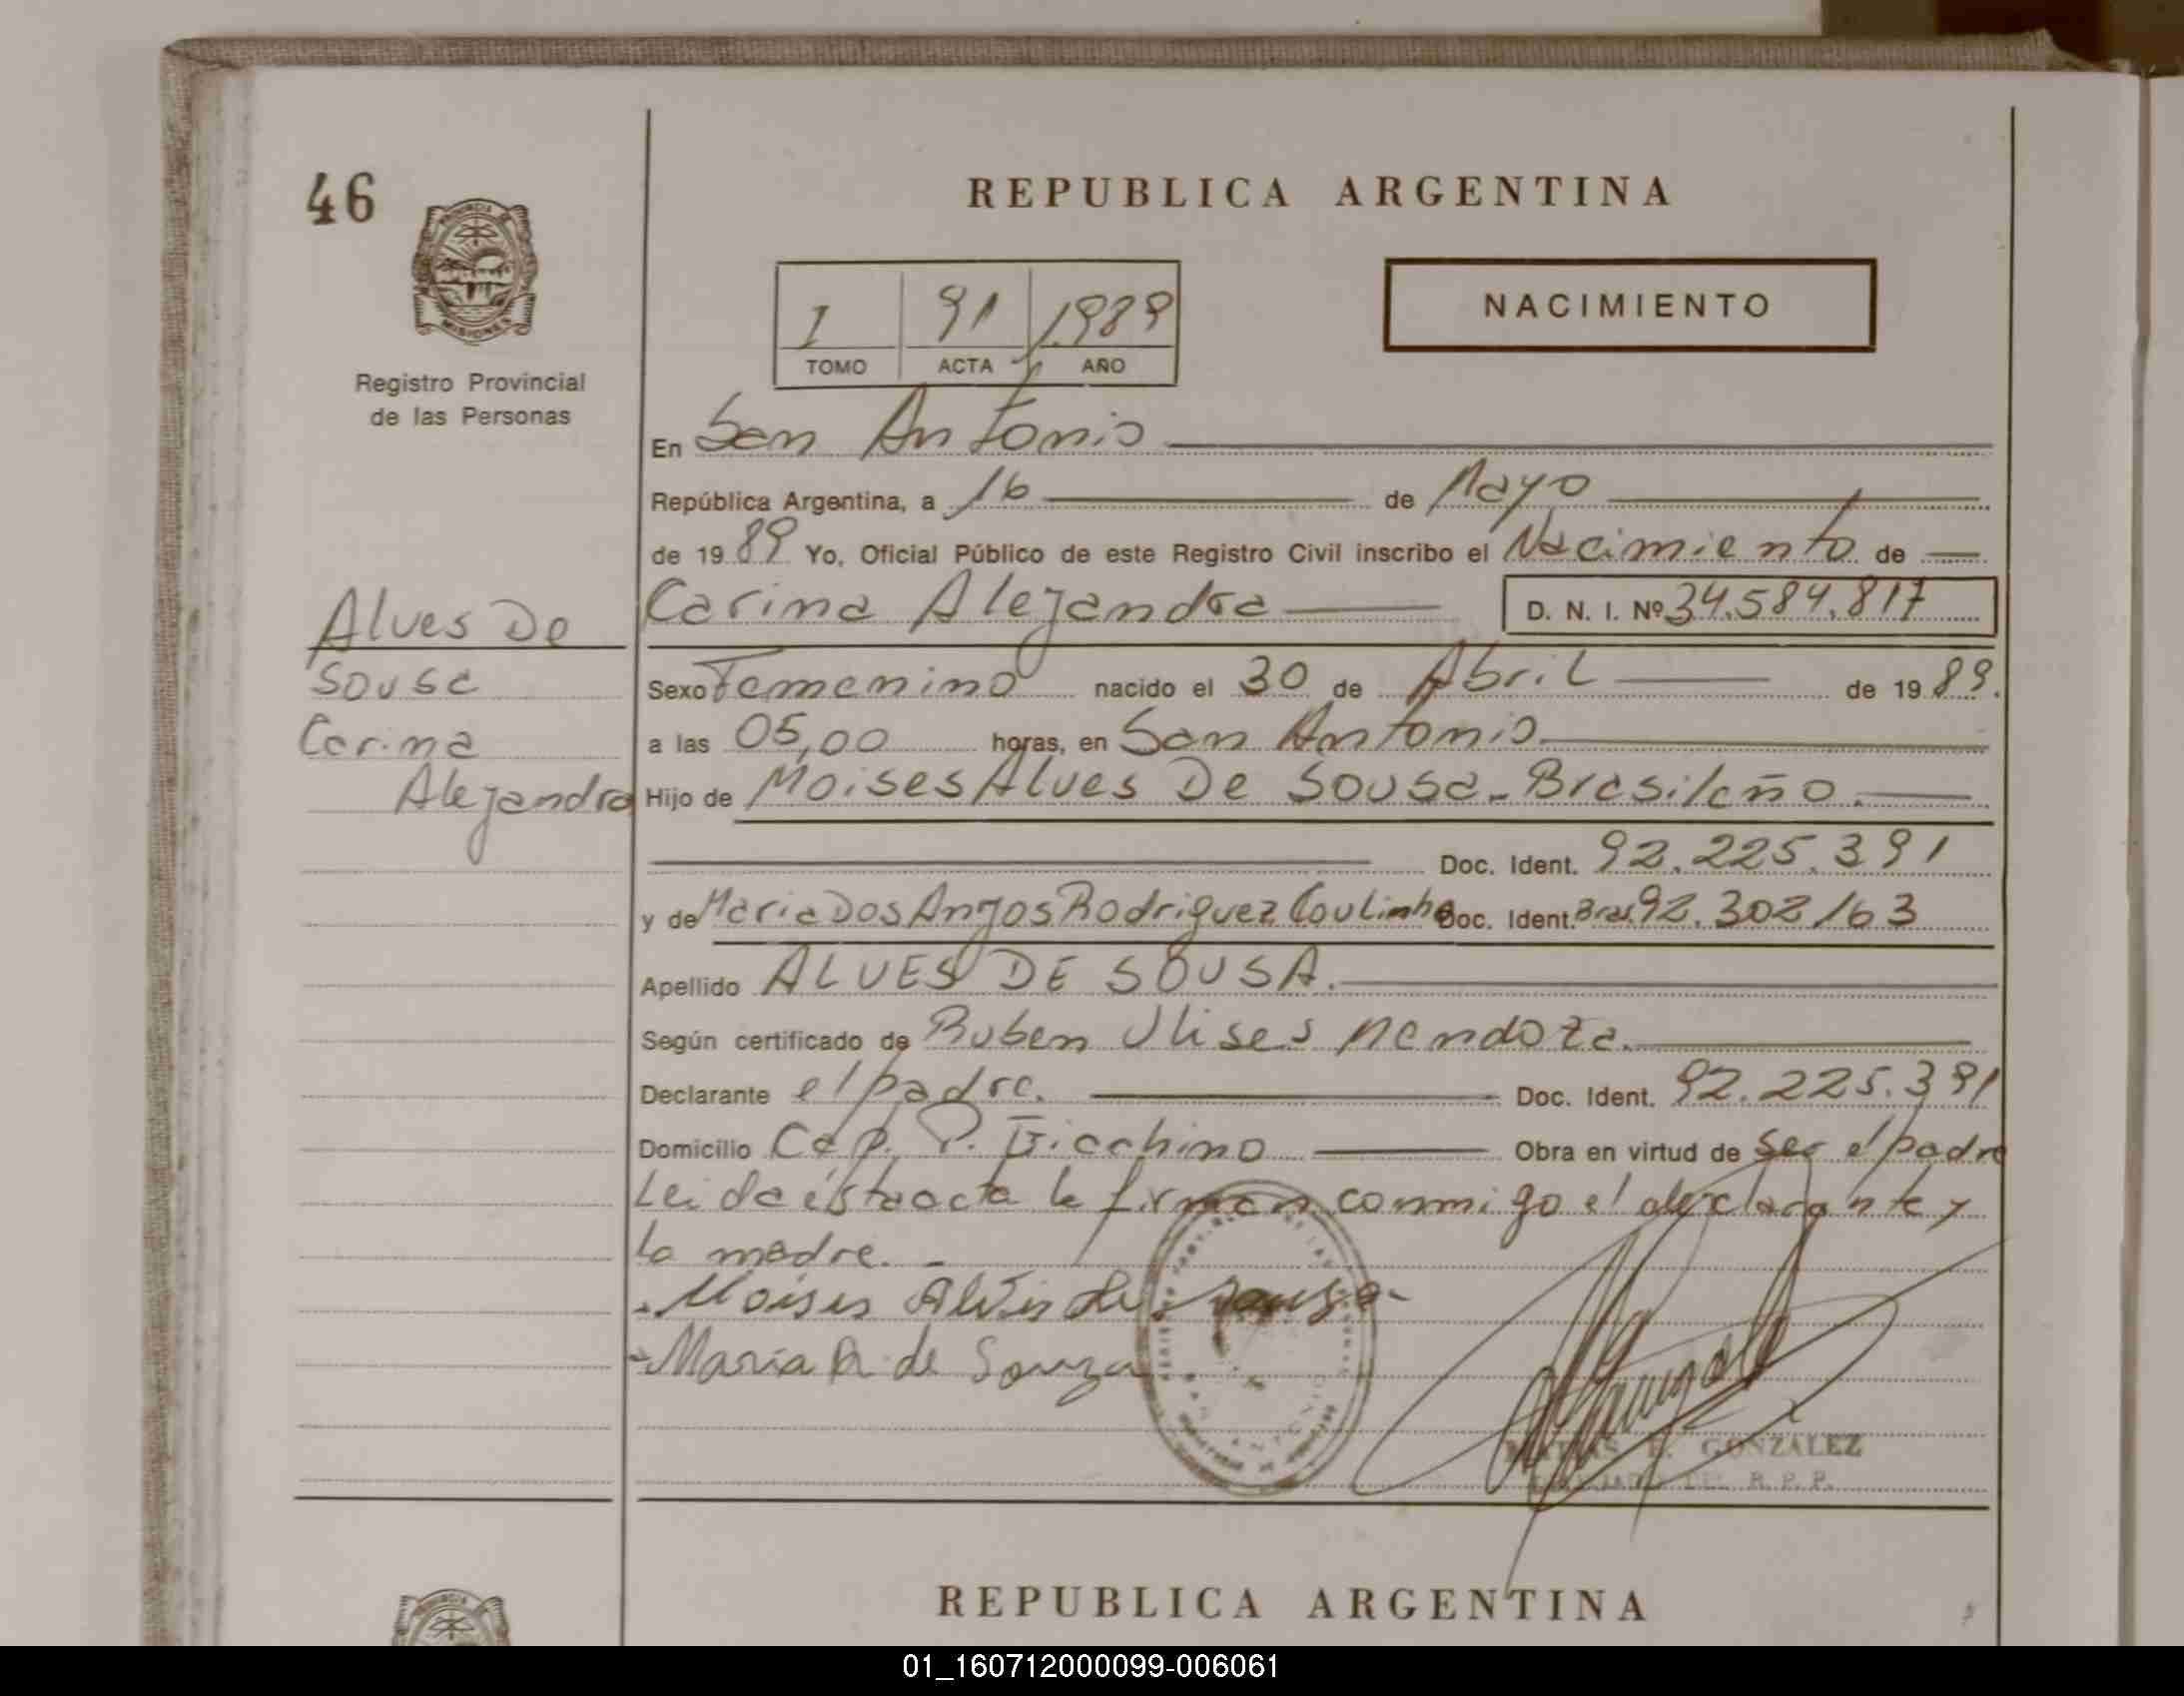 46
REPUBLICA ARGENTINA
MISIONES
Registro Provincial
de las Personas
I 91 1989
TOMO ACTA AÑO
NACIMIENTO
En San Antonio
República Argentina, a 16 de Mayo
de 1989 Yo, Oficial Público de este Registro Civil inscribo el Nacimiento de
Carina Alejandra D. N. I. Nº 34.584.817
Alves De
Sousa
Carina
Alejandra
Sexo Femenino nacido el 30 de Abril de 1989.
a las 05,00 horas, en San Antonio
Hijo de Moises Alves De Sousa - Brasileño.
Doc. Ident. 92.225.391
y de Maria Dos Anjos Rodriguez Coutinho Doc. Ident. Bras. 92.302163
Apellido ALVES DE SOUSA.
Según certificado de Ruben Ulises Mendoza.
Declarante el padre. Doc. Ident. 92.225.391
Domicilio Cap. P. Obra en virtud de Ser el padre
Leida ésta acta la firman conmigo el declarante y
la madre. -
- Moises Alves de Sousa -
- Maria R de Souza
GONZALEZ
DEL R. P. P.
REPUBLICA ARGENTINA
01_160712000099-006061